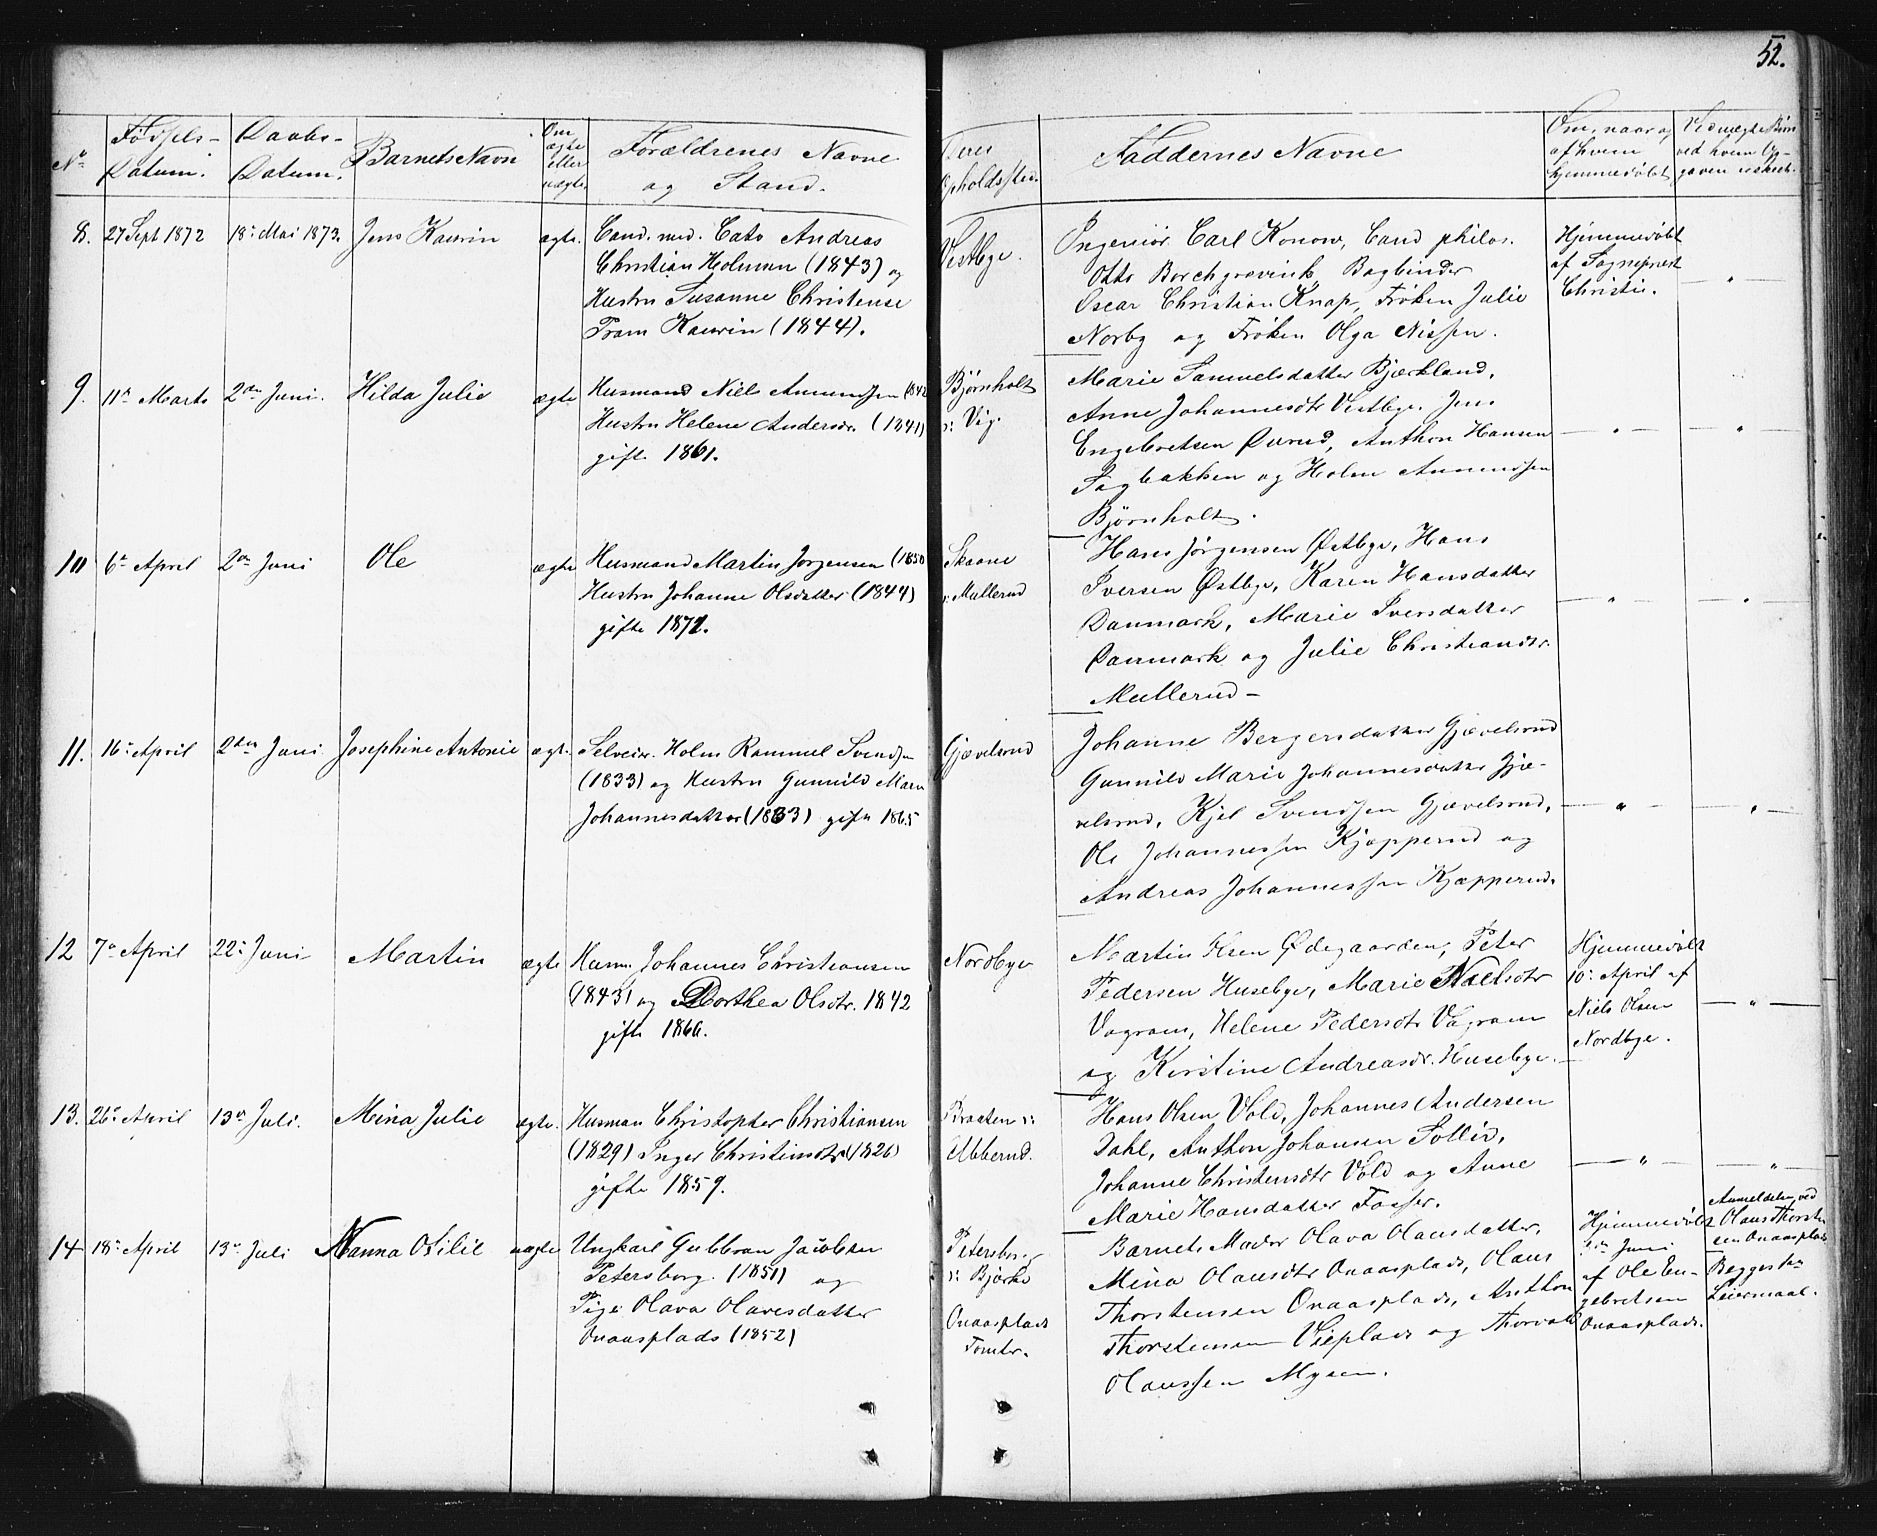 52.
No
Fødsels-
Datum.
Daabs-
Datum.
Barnets Navn
Om
ægte
eller
uægte.
Forældrenes Navne
og Stand.
Deres
Opholdssted.
Faddernes Navne
Om, naar og
af hvem
hjemmedøbt
Ved uægte Børn
ved hvem Op-
gaven er skeet.
8. 27 Sept 1872 18: Mai 1873. Jens Kaurin ægte.
Cand. med. Cato Andreas
Christian Holmen (1843) og
Hustru Susanne Christense
Pram Kaurin (1844).
Vestbye.
Ingeniør Carl Konow, Cand philos.
Otto Borchgrevink, Bogbinder
Oscar Christian Knap, Frøken Julie
Norby og Frøken Olga Nissen.
Hjemmedøbt
af Sognepræst
Christie.
"
9. 11te Marts 2den Juni. Hilda Julie ægte
Husmand Niels Amundsen (1842
Hustru Helene Andersdr. (1841)
gifte 1861.
Bjørnholt
v: Vig.
Marie Samuelsdatter Bjærkland,
Anne Johannesdtr Vestbye, Jens
Engebretsen Durud, Anthon Hansen
Sagbakken og Holm Amundsen
Bjørnholt.
" "
10 6te April 2den Juni Ole ægte
Husmand Martin Jørgensen (1850
Hustru Johanne Olsdatter (1844)
gifte 1872.
Skaane
v: Mullerud
Hans Jørgensen Østbye, Hans
Iversen Østbye, Karen Hansdatter
Danmark, Marie Iversdatter
Danmark og Julie Christiansdtr.
Mullerud –
" "
11. 16: April 2den Juni Josephine Antonie ægte.
Selveier Holm Rammel Svendsen
(1833) og Hustru Gunnild Marie
Johannesdatter (1833) gifte 1865
Gjævelsrud
Johanne Bergersdatter Gjævelsrud
Gunnild Marie Johannesdatter Gjæ-
velsrud, Kjel Svendsen Gjævelsrud,
Ole Johannessen Kjæpperud og
Andreas Johannessen Kjæpperud.
" "
12 7de April 22: Juni Martin ægte
Husm. Johannes Christiansen
(1843) og Dorthea Olsdtr. 1842
gifte 1866.
Nordbye
Martin Olsen Ødegaarden, Peter
Pedersen Husebye, Marie Nielsdtr
Vagram, Helene Pedersdtr Vagram
og Kirstine Andreasdr. Husebye.
Hjemmedøbt
10: April af
Niels Olsen
Nordbye.
"
13. 26de April 13de Juli. Mina Julie ægte.
Husman Christopher Christiansen
(1829) Inger Christiansdtr (1826)
gifte 1859.
Braaten v:
Abberud.
Hans Olsen Vold, Johannes Andersen
Dahl, Anthon Johansen Sollid,
Johanne Christensdtr Vold og Anne
Marie Hansdatter Fosser.
" "
14 18: April 13de Juli Nanna Otilie uægte
Ungkarl Gulbran Jacobsen
Petersborg (1851) og
Pige Olava Olavesdatter
Onaasplads (1852)
Petersborg
v: Bjørke
Onaasplads
Tomter.
Barnets Moder Olava Olausdatter,
Mina Olausdtr Onaasplads, Olaus
Thorstensen Onaasplads, Anthon
Thorstensen Vieplads og Thorvald
Olaussen Mysen.
Hjemmedøbt
Juni
af Ole En-
gebretsen
Onaasplads.
Anmeldelse ved
Olaus Thorsten-
sen Onaasplads
Begges 1ste
Leiermaal.